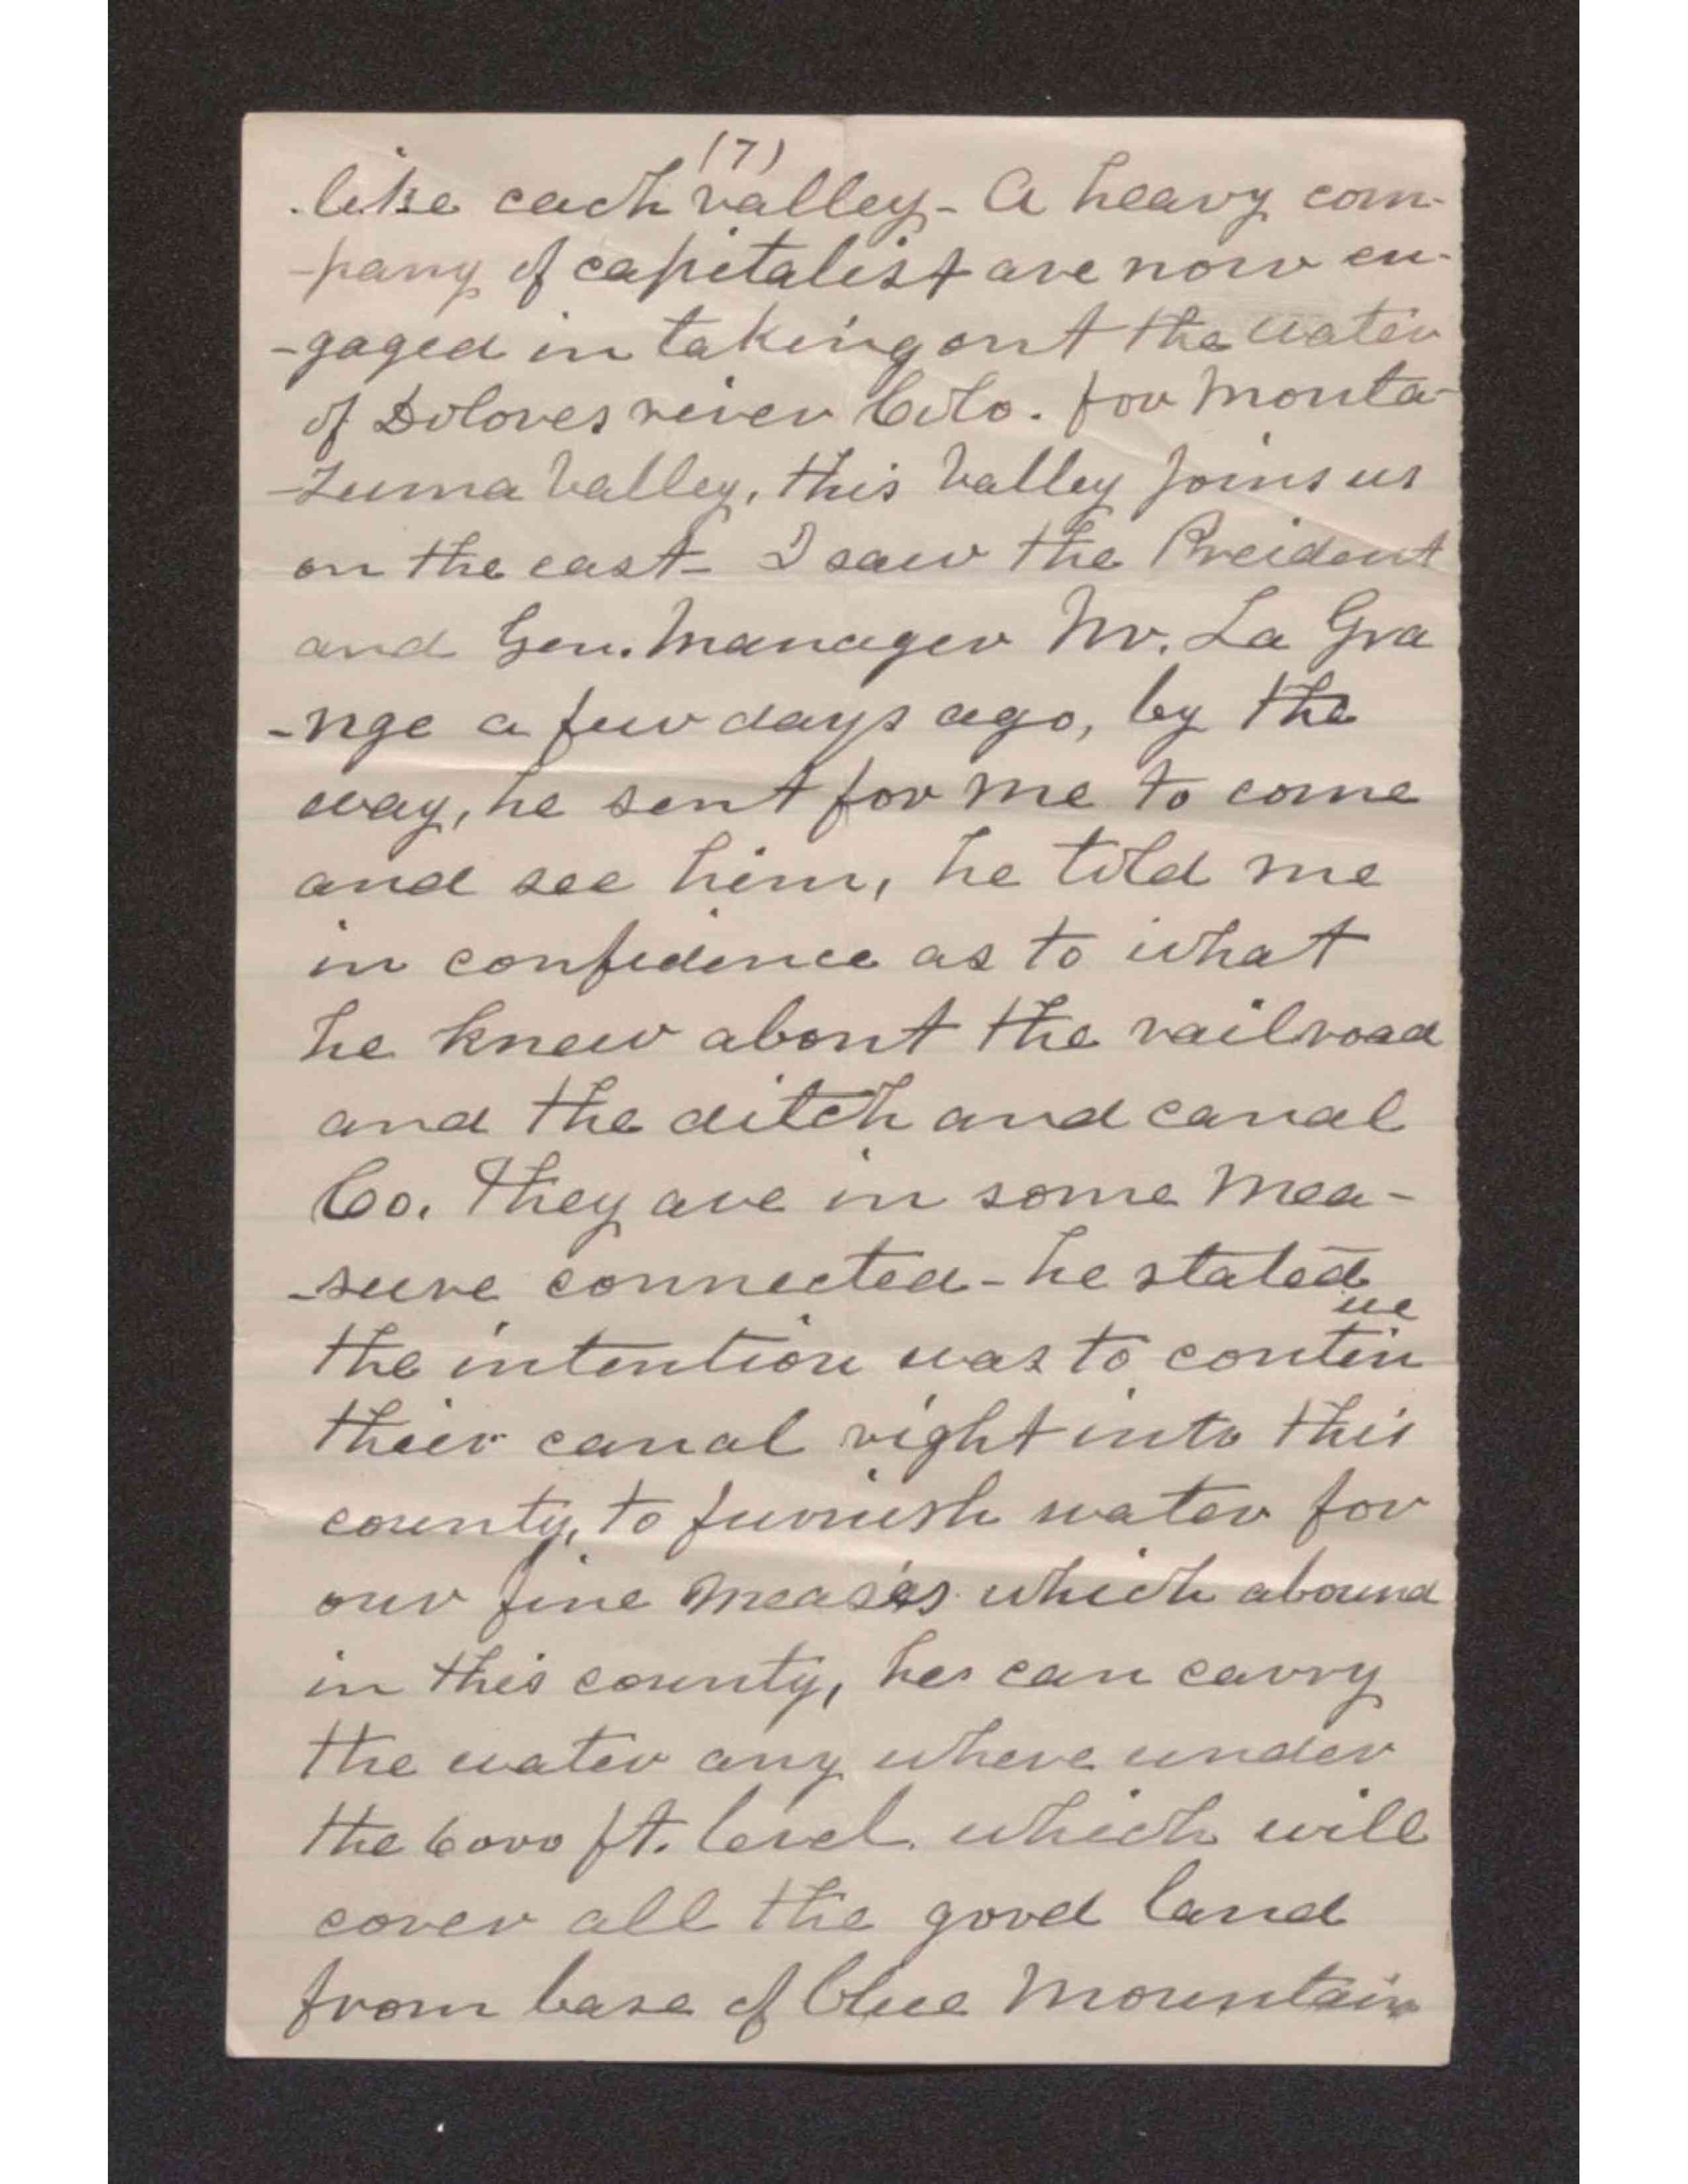 (7)
like each valley - A heavy com-
-pany of capitalist are now en-
-gaged in taking out the water
of Dolores river Colo. for Monta-
-zuma Valley, this Valley joins us
on the east - I saw the Preident
and Gen. Manager Mr. La Gra
-nge a few days ago, by the
way, he sent for me to come
and see him, he told me
in confidence as to what
he knew about the railroad
and the ditch and canal
Co. They are in some mea-
-sure connected - he stated
the intention was to continue
thier canal right into this
county, to furnish water for
our fine measas which abound
in this county, he can carry
the water any where under
the 6000 ft. level which will
cover all the good land
from base of Blue Mountain